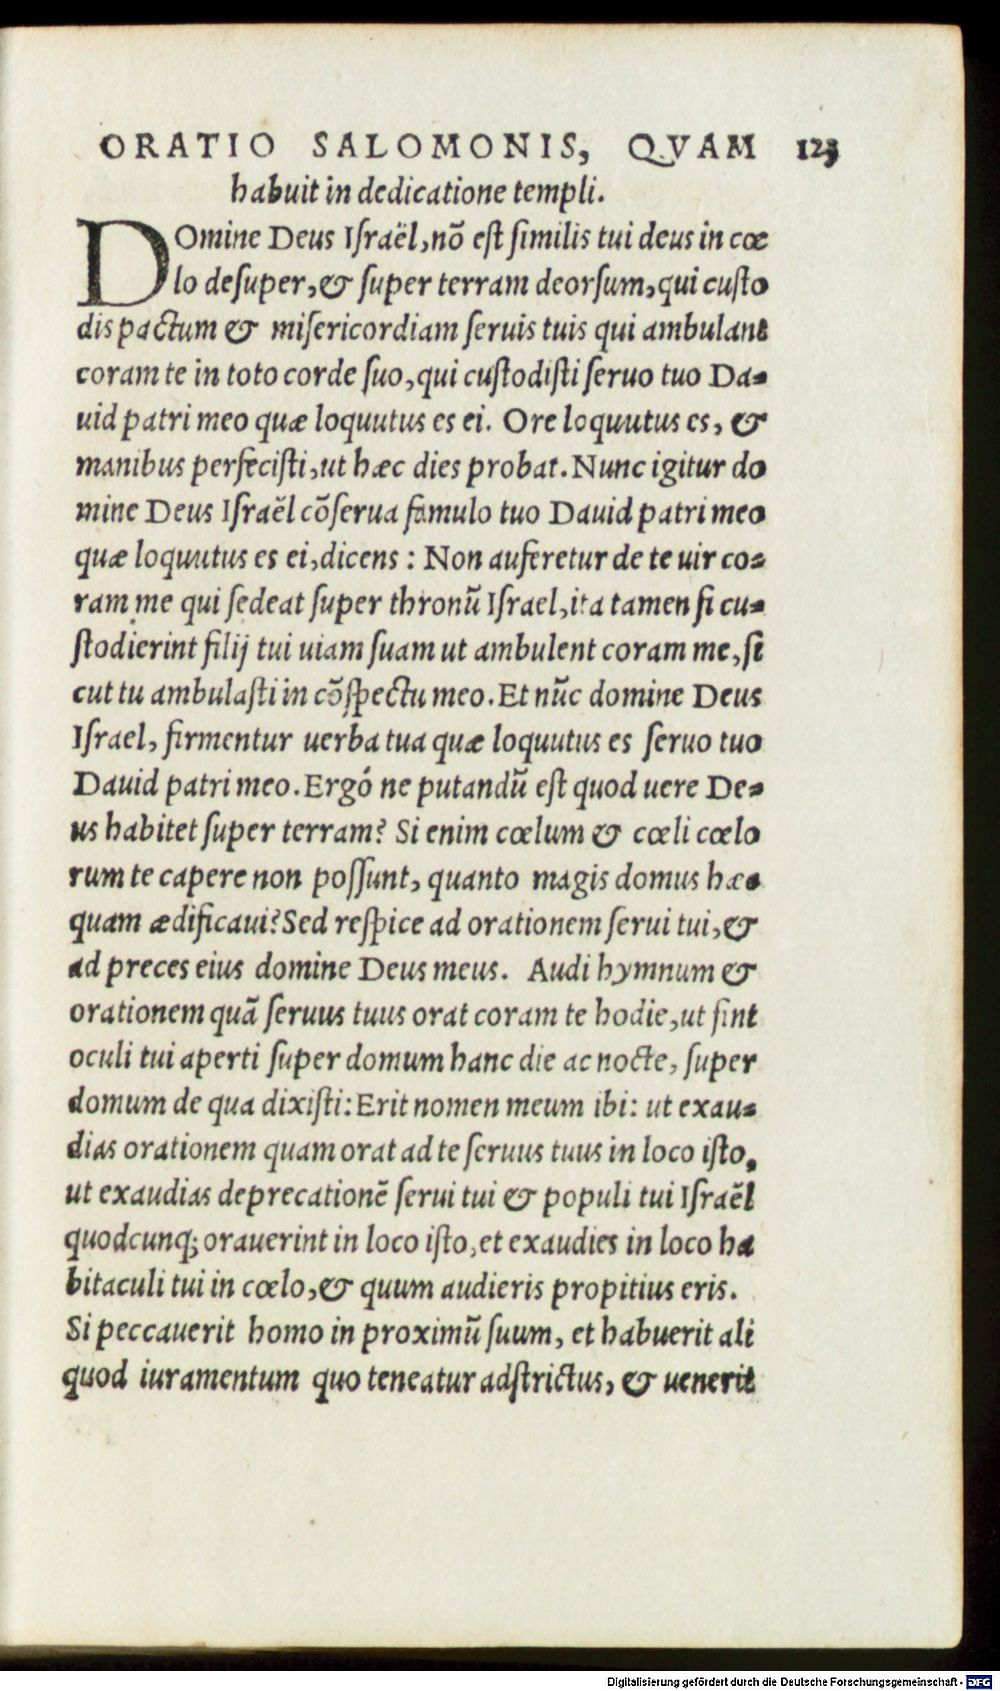 ORATIO SALOMONIS, QVAM 123
habuit in dedicatione templi.
DOmine Deus Iſraël, nõ eſt ſimilis tui deus in cœ
lo deſuper, & ſuper terram deorſum, qui cuſto
dis pactum & miſericordiam ſeruis tuis qui ambulant
coram te in toto corde ſuo, qui cuſtodiſti ſeruo tuo Da-
uid patri meo quæ loquutus es ei. Ore loquutus es, &
manibus perfeciſti, ut hæc dies probat. Nunc igitur do
mine Deus Iſraẽl cõſerua famulo tuo Dauid patri meo
quæ loquutus es ei, dicens : Non auferetur de te uir co-
ram me qui ſedeat ſuper thronũ Iſrael, ita tamen ſi cu-
ſtodierint filij tui uiam ſuam ut ambulent coram me, ſi
cut tu ambulaſti in cõſpectu meo. Et nũc domine Deus
Iſrael, firmentur uerba tua quæ loquutus es ſeruo tuo
Dauid patri meo. Ergó ne putandũ eſt quod uere De-
us habitet ſuper terram? Si enim cœlum & cœli cœlo
rum te capere non poſſunt, quanto magis domus hæc
quam ædificaui? Sed reſpice ad orationem ſerui tui, &
ad preces eius domine Deus meus. Audi hymnum &
orationem quã ſeruus tuus orat coram te hodie, ut ſint
oculi tui aperti ſuper domum hanc die ac nocte, ſuper
domum de qua dixiſti: Erit nomen meum ibi: ut exau-
dias orationem quam orat ad te ſeruus tuus in loco iſto,
ut exaudias deprecationẽ ſerui tui & populi tui Iſraẽl
quodcunq; orauerint in loco iſto, et exaudies in loco ha
bitaculi tui in cœlo, & quum audieris propitius eris.
Si peccauerit homo in proximũ ſuum, et habuerit ali
quod iuramentum quo teneatur adſtrictus, & uenerit
Digitalisierung gefördert durch die Deutsche Forschungsgemeinschaft - DFG